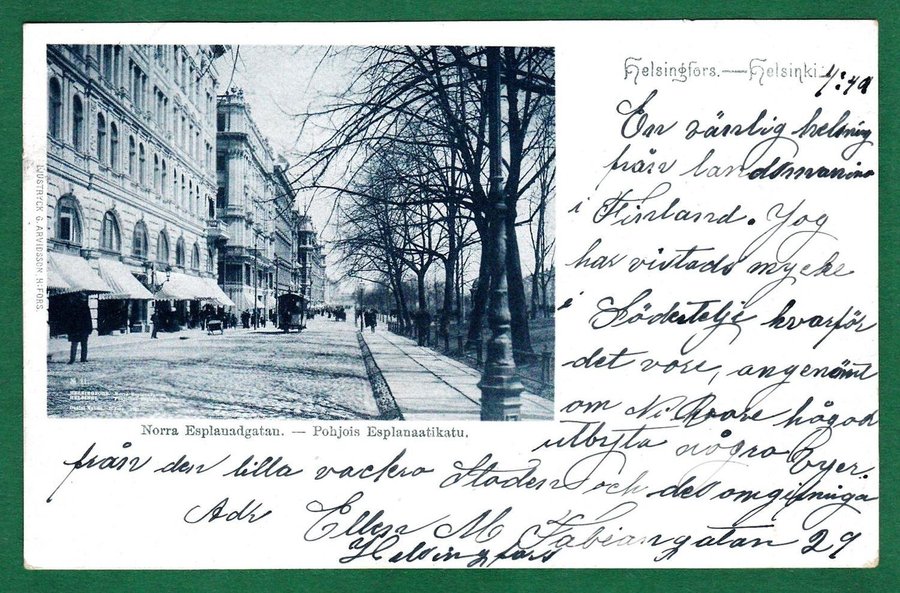 Helsingfors. — Helsinki.
En vänlig helsning
från landsmaninna
i Finland. Jag
har vistads mycke
i Södertelje hvarför
det vore angenämt
om Ni Hvore hågad
utbyta några Vyer.
från den lilla vackra Staden och det omgifninga
Adr Ellen M Fabiansgatan 29
Helsingfors
Norra Esplanadgatan. — Pohjois Esplanaatikatu.
LJUSTRYCK G. ARVIDSSON H:FORS.